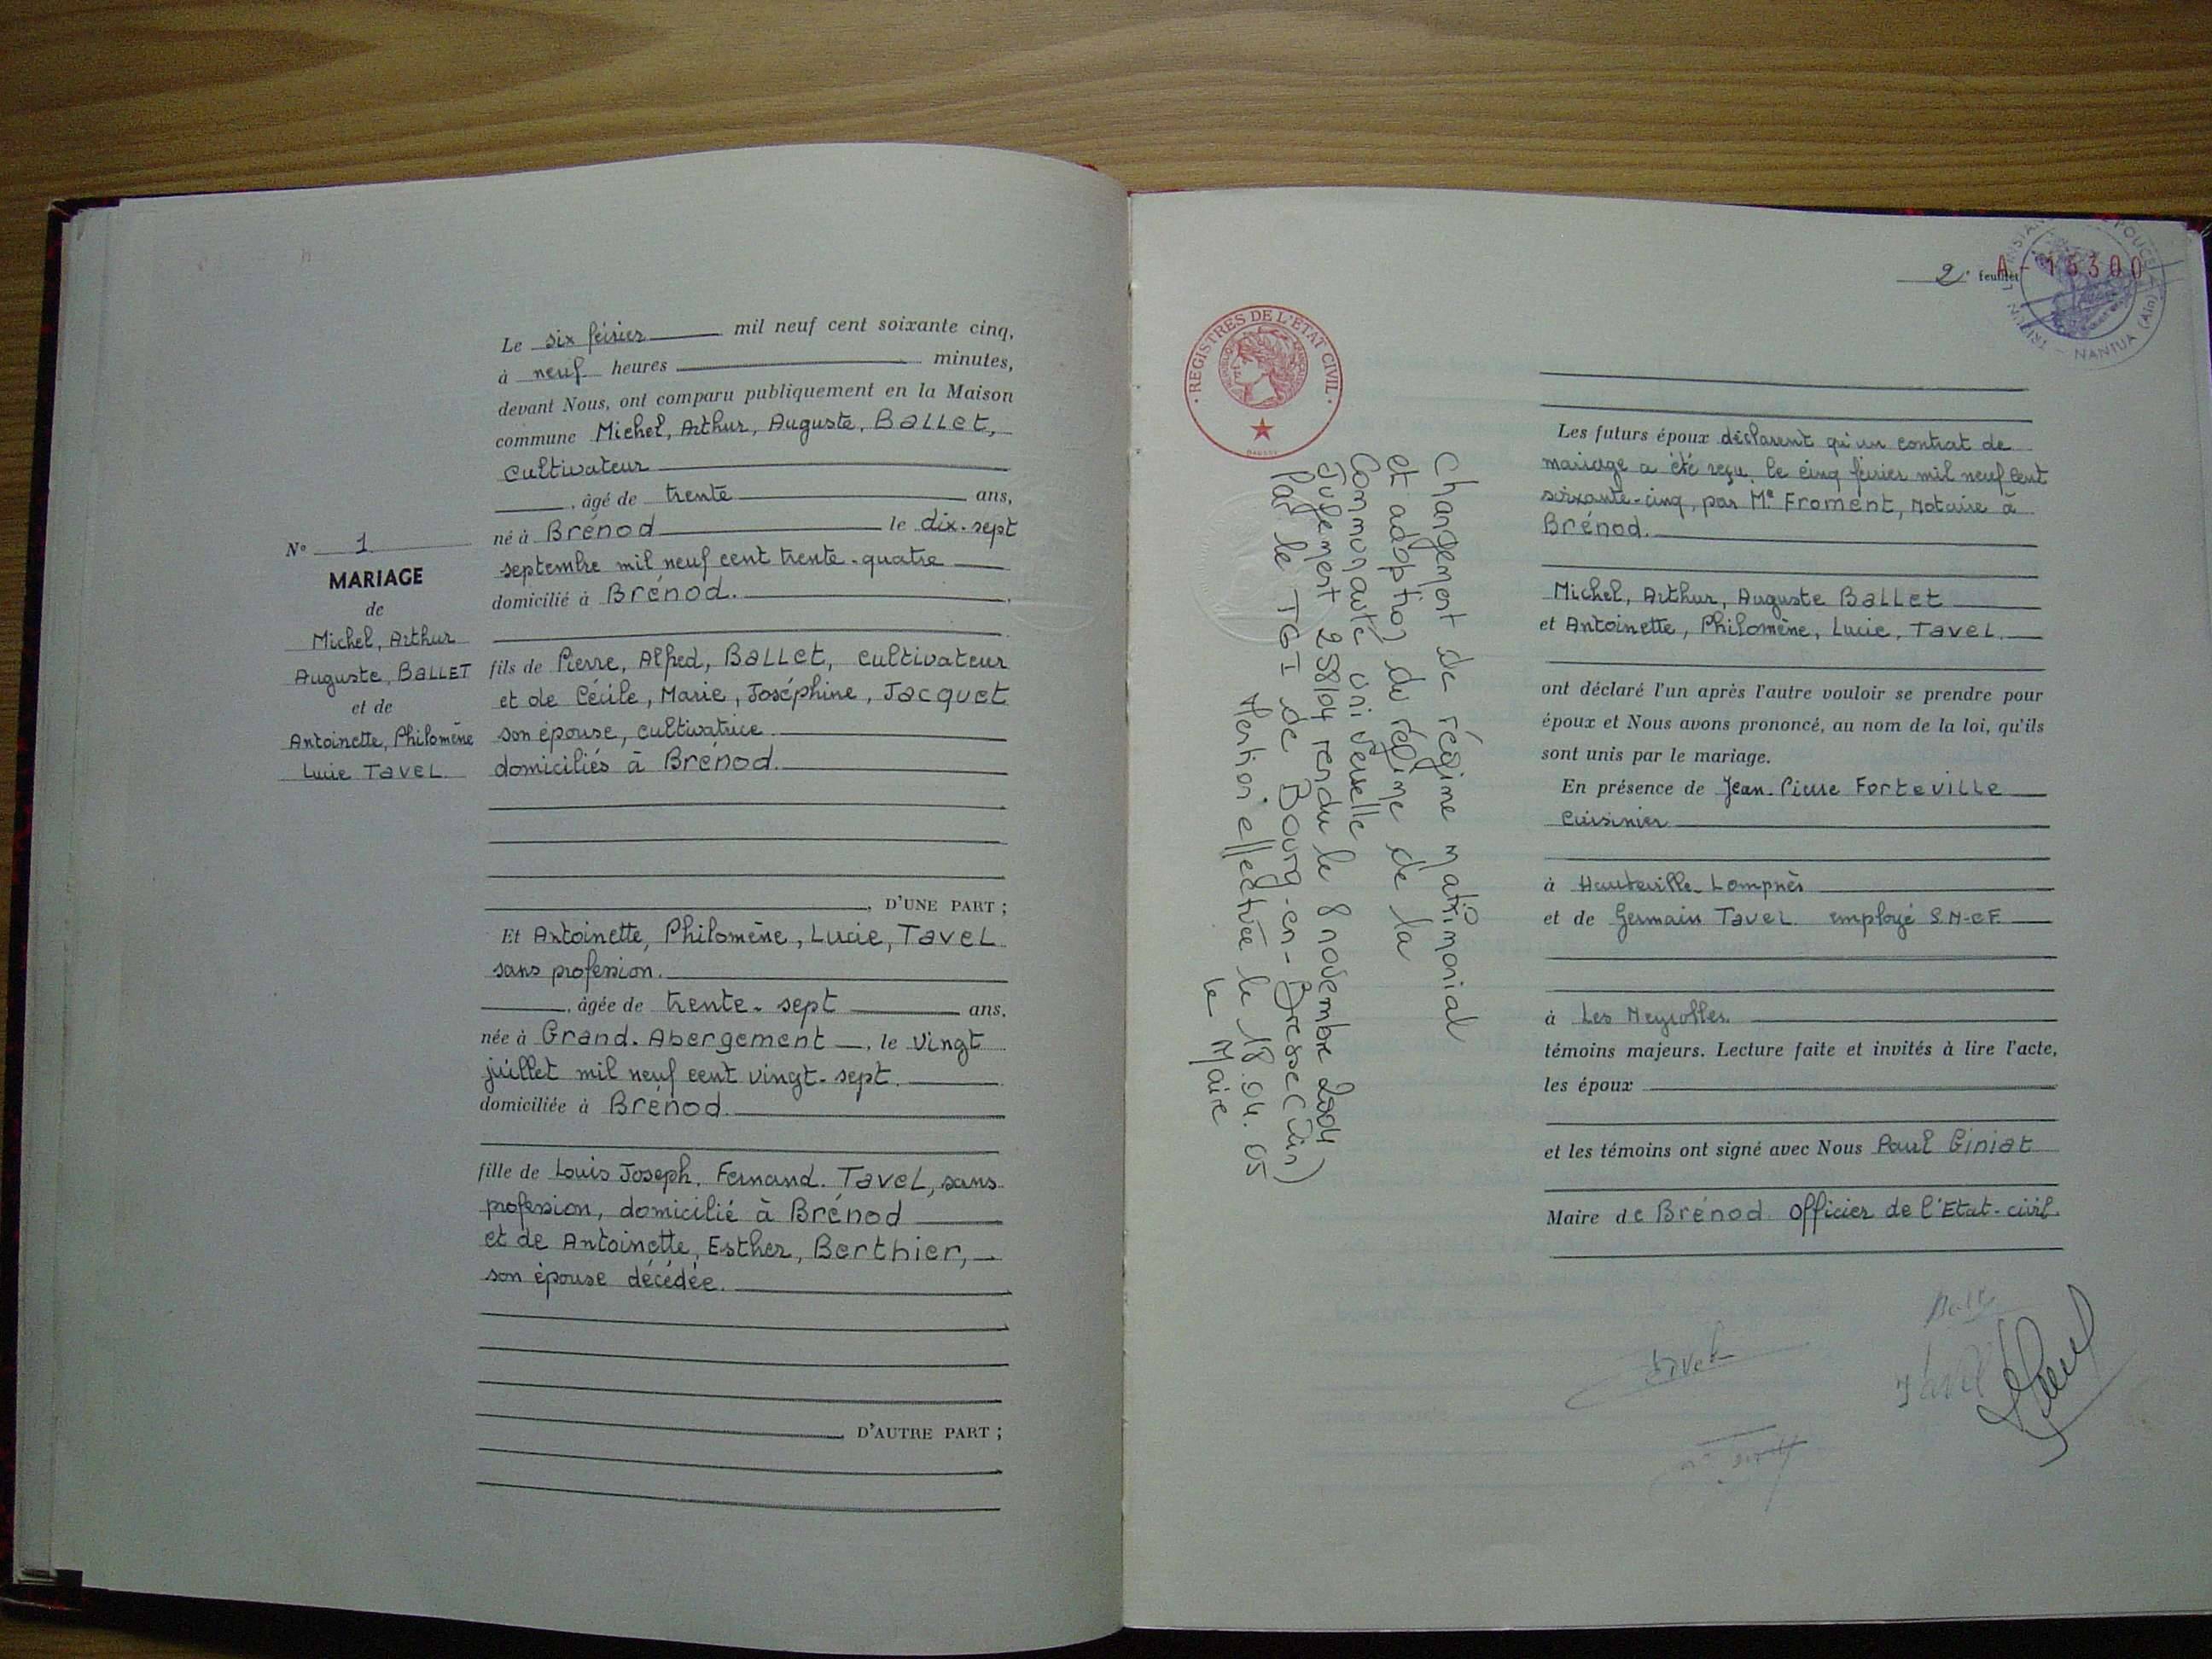 N° 1
MARIAGE
de
Michel, Arthur
Auguste, BALLET
et de
Antoinette, Philomène
Lucie TAVEL
Le six février mil neuf cent soixante cinq,
à neuf heures minutes,
devant Nous, ont comparu publiquement en la Maison
commune Michel, Arthur, Auguste, BALLET,
cultivateur
, âgé de trente ans,
né à Brénod le dix-sept
septembre mil neuf cent trente-quatre
domicilié à Brénod.
fils de Pierre, Alfred, BALLET, cultivateur
et de Cécile, Marie, Joséphine, Jacquet
son épouse, cultivatrice
domiciliés à Brénod.
, D'UNE PART ;
Et Antoinette, Philomène, Lucie, TAVEL
sans profession.
, âgée de trente-sept ans,
née à Grand-Abergement, le vingt
juillet mil neuf cent vingt-sept.
domiciliée à Brénod.
fille de Louis Joseph. Fernand. TAVEL, sans
profession, domicilié à Brénod
et de Antoinette, Esther, Berthier,
son épouse décédée.
D'AUTRE PART ;
2e feuillet
A-15300
NANTUA (Ain)
REGISTRES DE L'ETAT CIVIL
Changement de régime matrimonial
et adoption du régime de la
Communauté universelle
Jugement 258/04 rendu le 8 novembre 2004
Par le TGI de Bourg-en-Bresse (Ain)
Mention effectuée le 18.04.05
le Maire
Les futurs époux déclarent qu'un contrat de
mariage a été reçu, le cinq février mil neuf cent
soixante-cinq, par Me Froment, Notaire à
Brénod.
Michel, Arthur, Auguste BALLET
et Antoinette, Philomène, Lucie, TAVEL.
ont déclaré l'un après l'autre vouloir se prendre pour
époux et Nous avons prononcé, au nom de la loi, qu'ils
sont unis par le mariage.
En présence de Jean-Pierre Forteville
Cuisinier
à Hauteville-Lompnès
et de Germain TAVEL employé S.N.C.F.
à Les Neyrolles
témoins majeurs. Lecture faite et invités à lire l'acte,
les époux
et les témoins ont signé avec Nous Paul Giniat
Maire de Brénod Officier de l'Etat-civil.